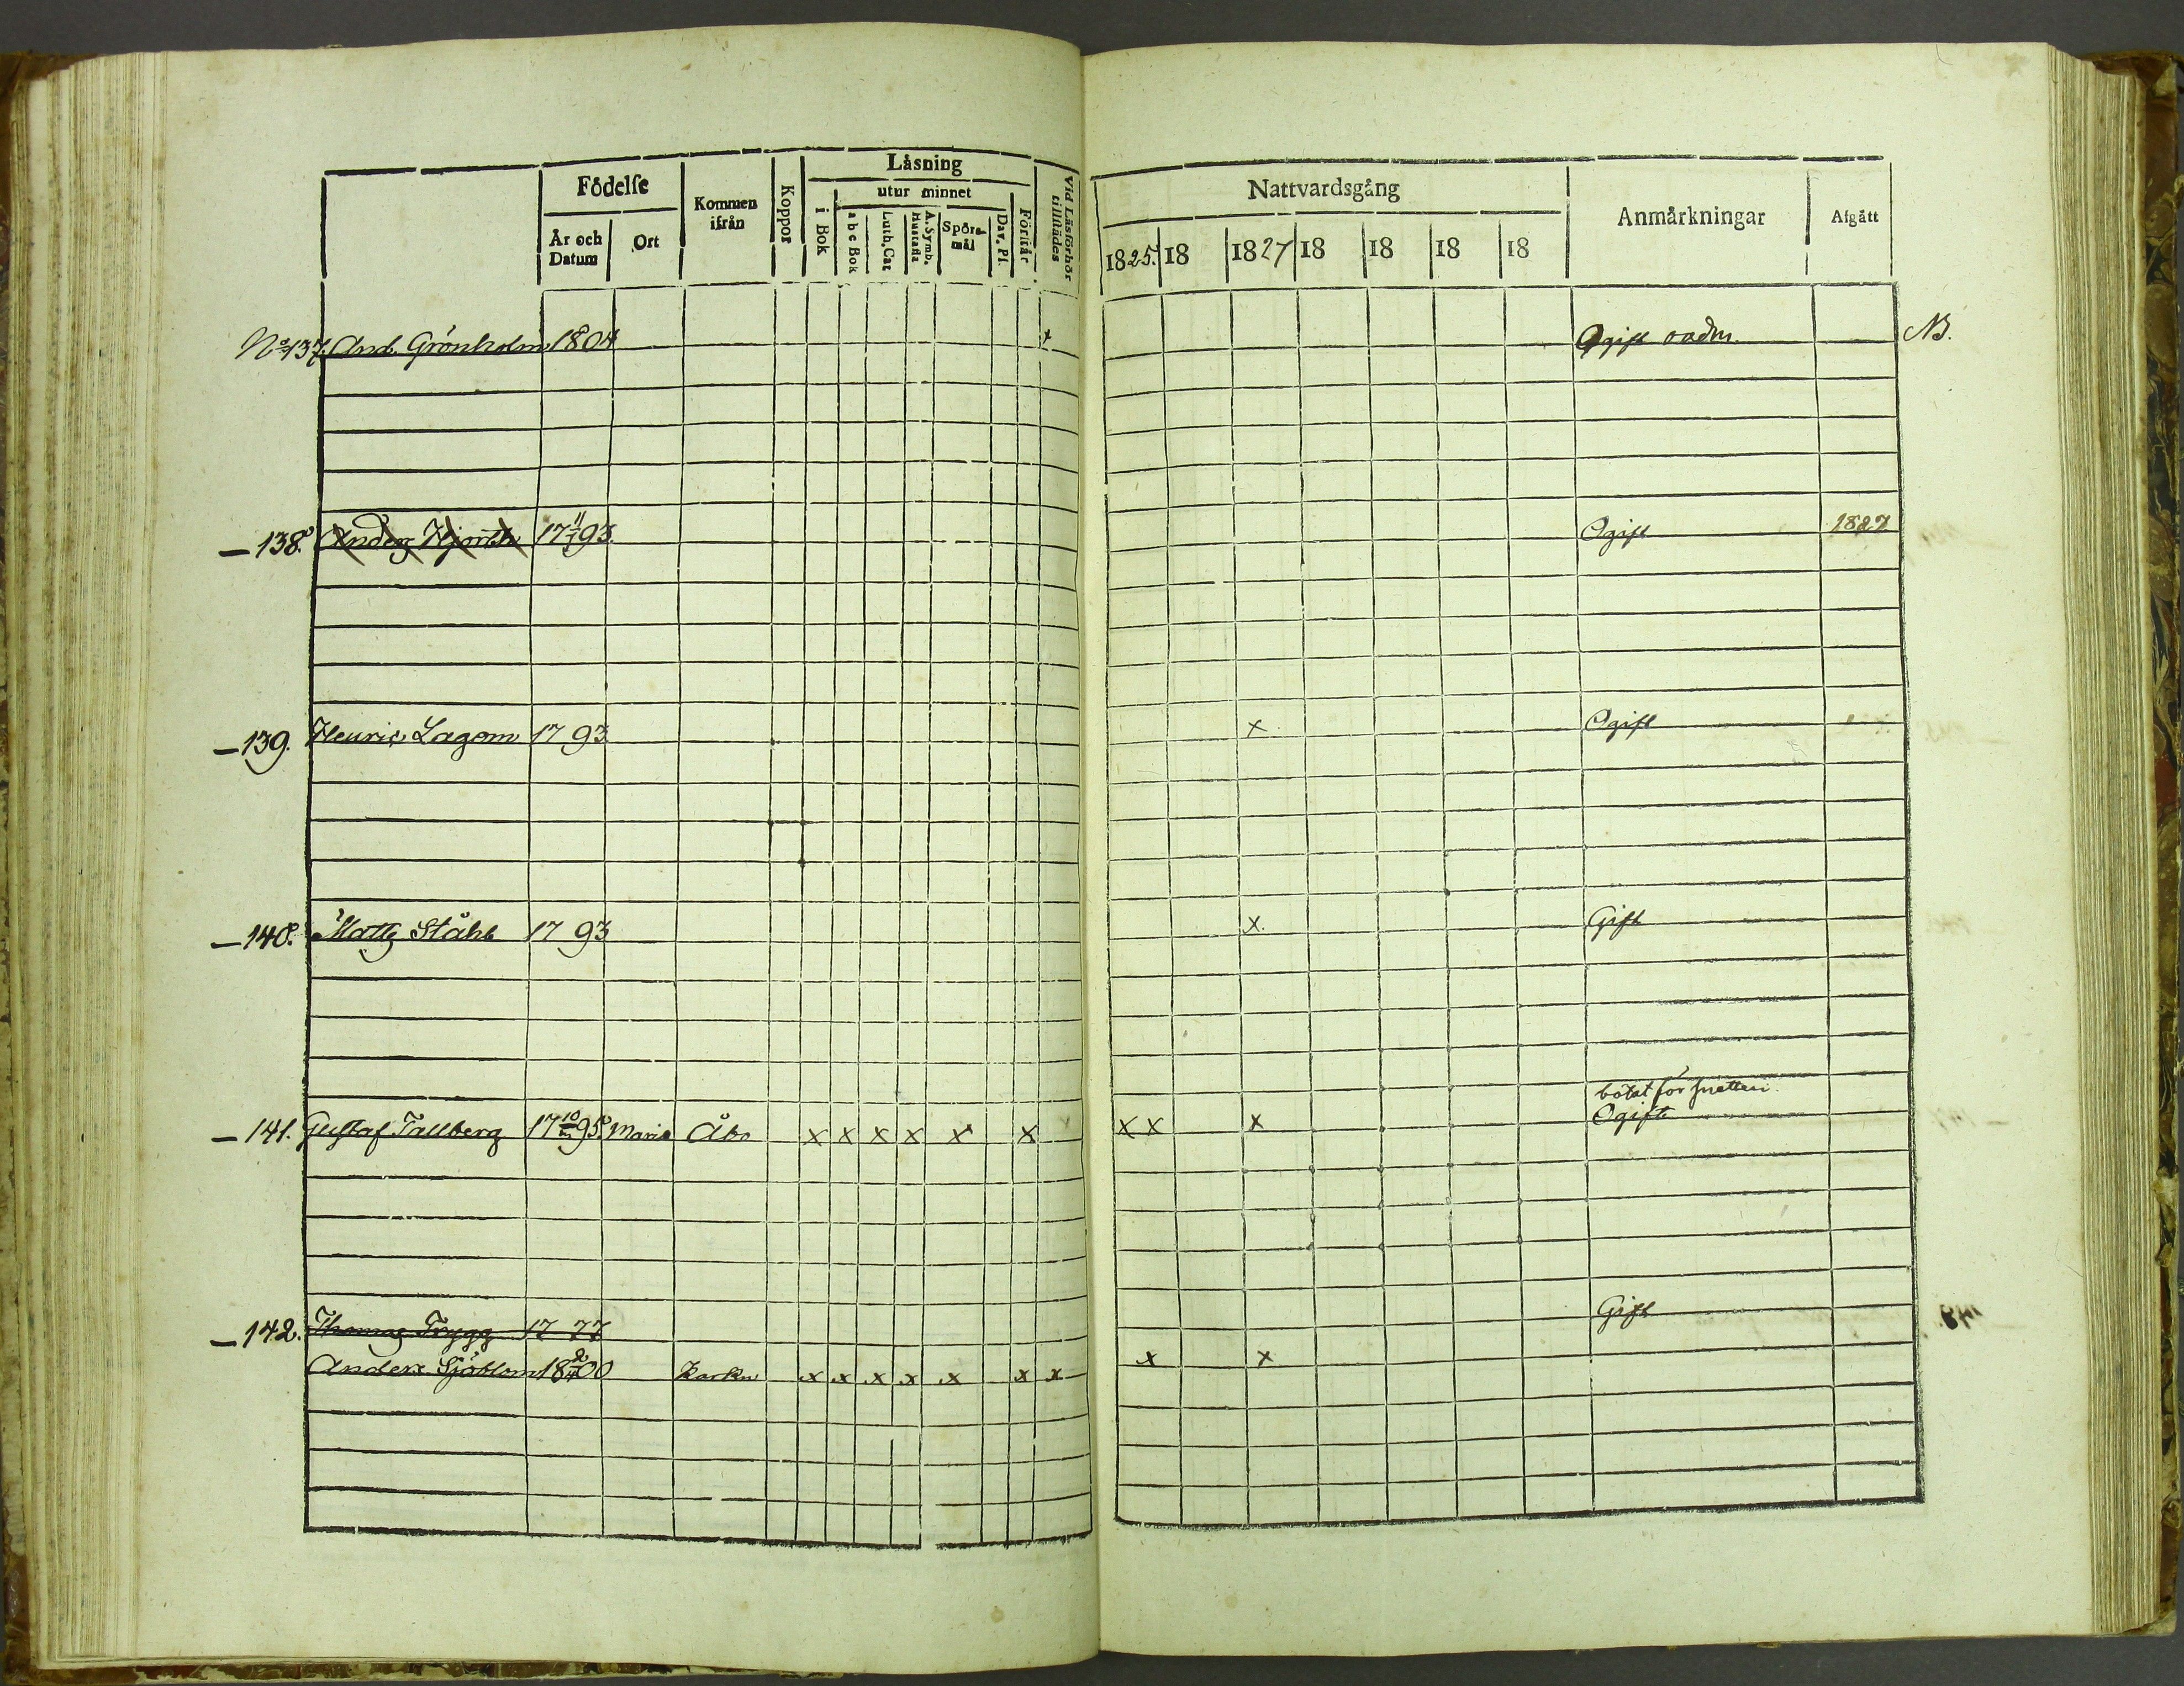 Födelse
År och Datum
Ort
Kommen ifrån
Koppor
Läsning
i Bok
utur minnet
a b c Bok
Luth. Cat
A. Symb. Hustafla
Spörsmål
Dav. Ps
Förstår
Vid Läsförhör tillstädes
Nattvardsgång
1825. 18 1827 18 18 18 18
Anmärkningar
Afgått
No 137. And. Grönholm 1804 x Ogift NB.
— 138. Anders Hjorth 17 11/7 93 Ogift 1827
— 139. Henric Lagom 17 93 x Ogift
— 140. Matts Ståhl 17 93 x. Gift
botat för
— 141. Gustaf Tallberg 17 10 95. Marie Åbo x x x x x x x x x Ogift
— 142. Thomas Trygg 17 77 Gift
Anders Sjöblom 18 00 Karku x x x x x x x x x